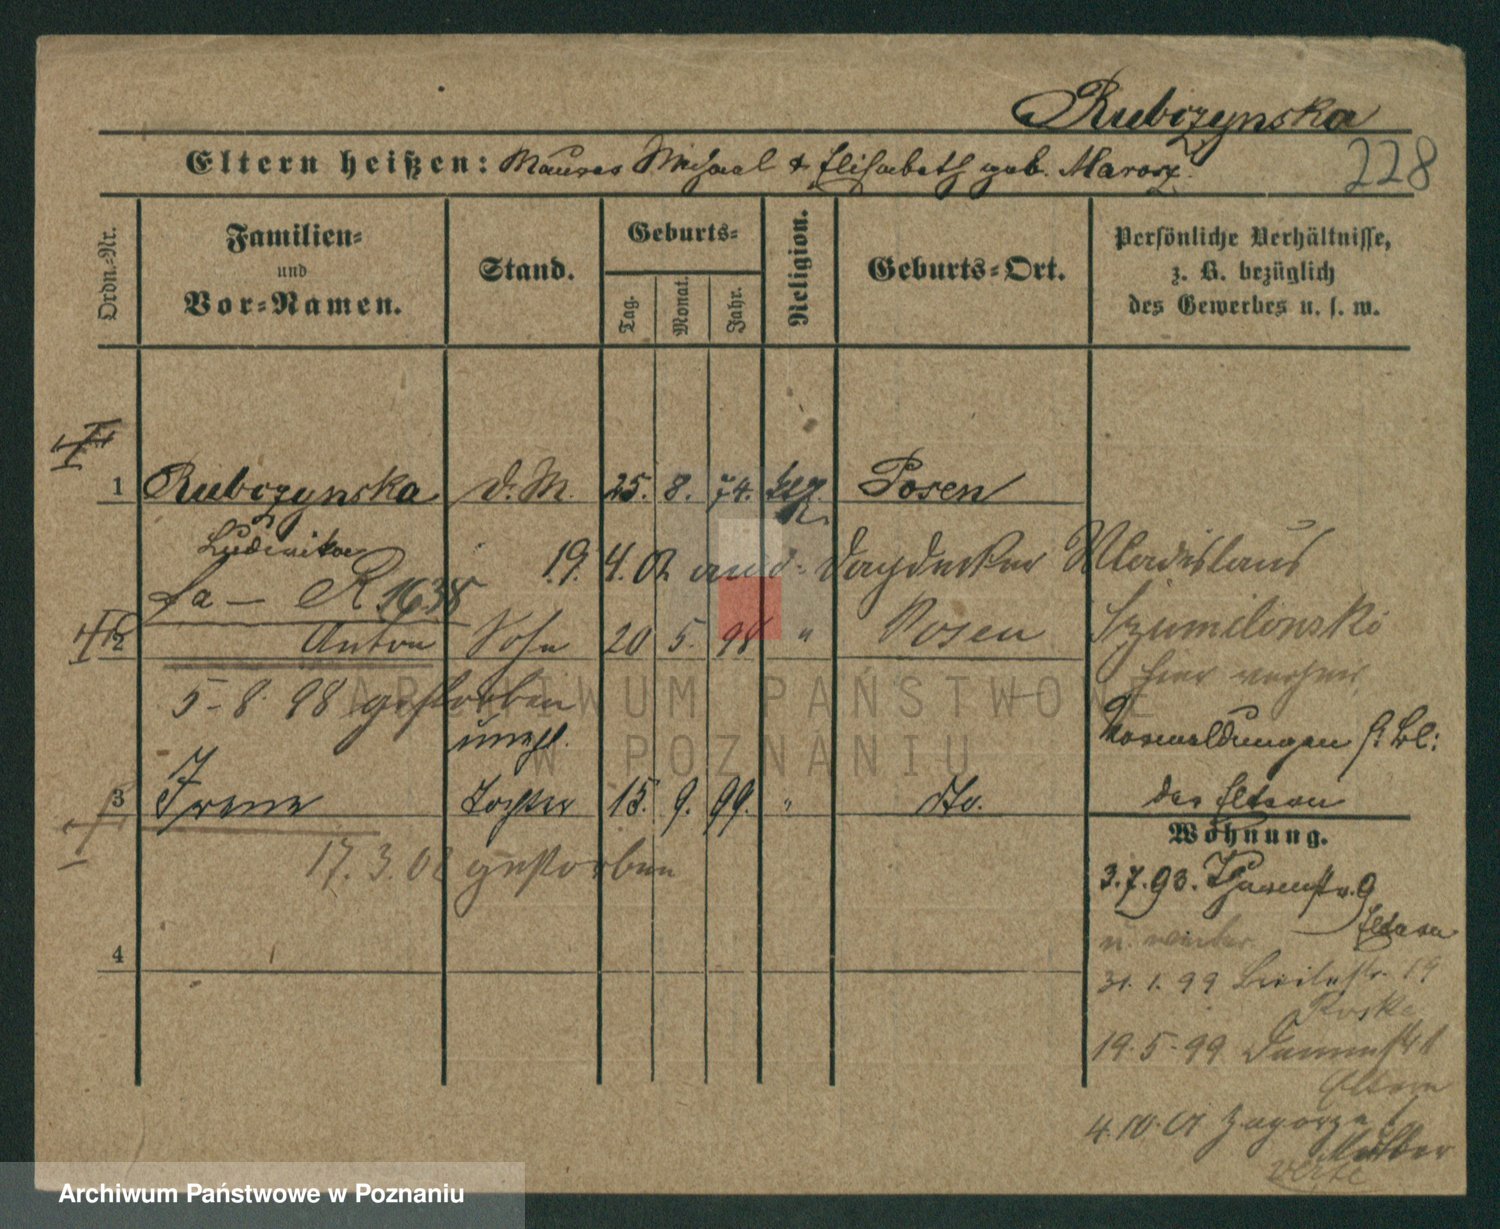 Rubczynska
Eltern heißen: Maurer Michael & Elisabeth geb. Marosz.
228
Ordn.-Nr.
Familien-
und
Vor-Namen.
Stand.
Geburts-
Tag.
Monat.
Jahr.
Religion.
Geburts-Ort.
Persönliche Verhältnisse,
z. B. bezüglich
des Gewerbes u. s. w.
1 Rubczynska d. M. 25. 8. 74. Posen
Ludowika
19. 4. 02 Dachdecker Wladislaus
R 1638
2 Anton Sohn 20 5. 98 " Posen Szumilonski
hier
5-8. 98 gestorben
unehl.
Vormeldungen s. bl:
3 Irene Tochter 15. 9. 99. " dto. der Eltern
Wohnung.
17. 3. 02 gestorben
3.7.93. 9
Eltern
u. weiter
4
31. 1. 99 19
19.5-99
Eltern
4.10.01 Zagorze
Mutter
verte
ARCHIWUM PAŃSTWOWE
W POZNANIU
Archiwum Państwowe w Poznaniu